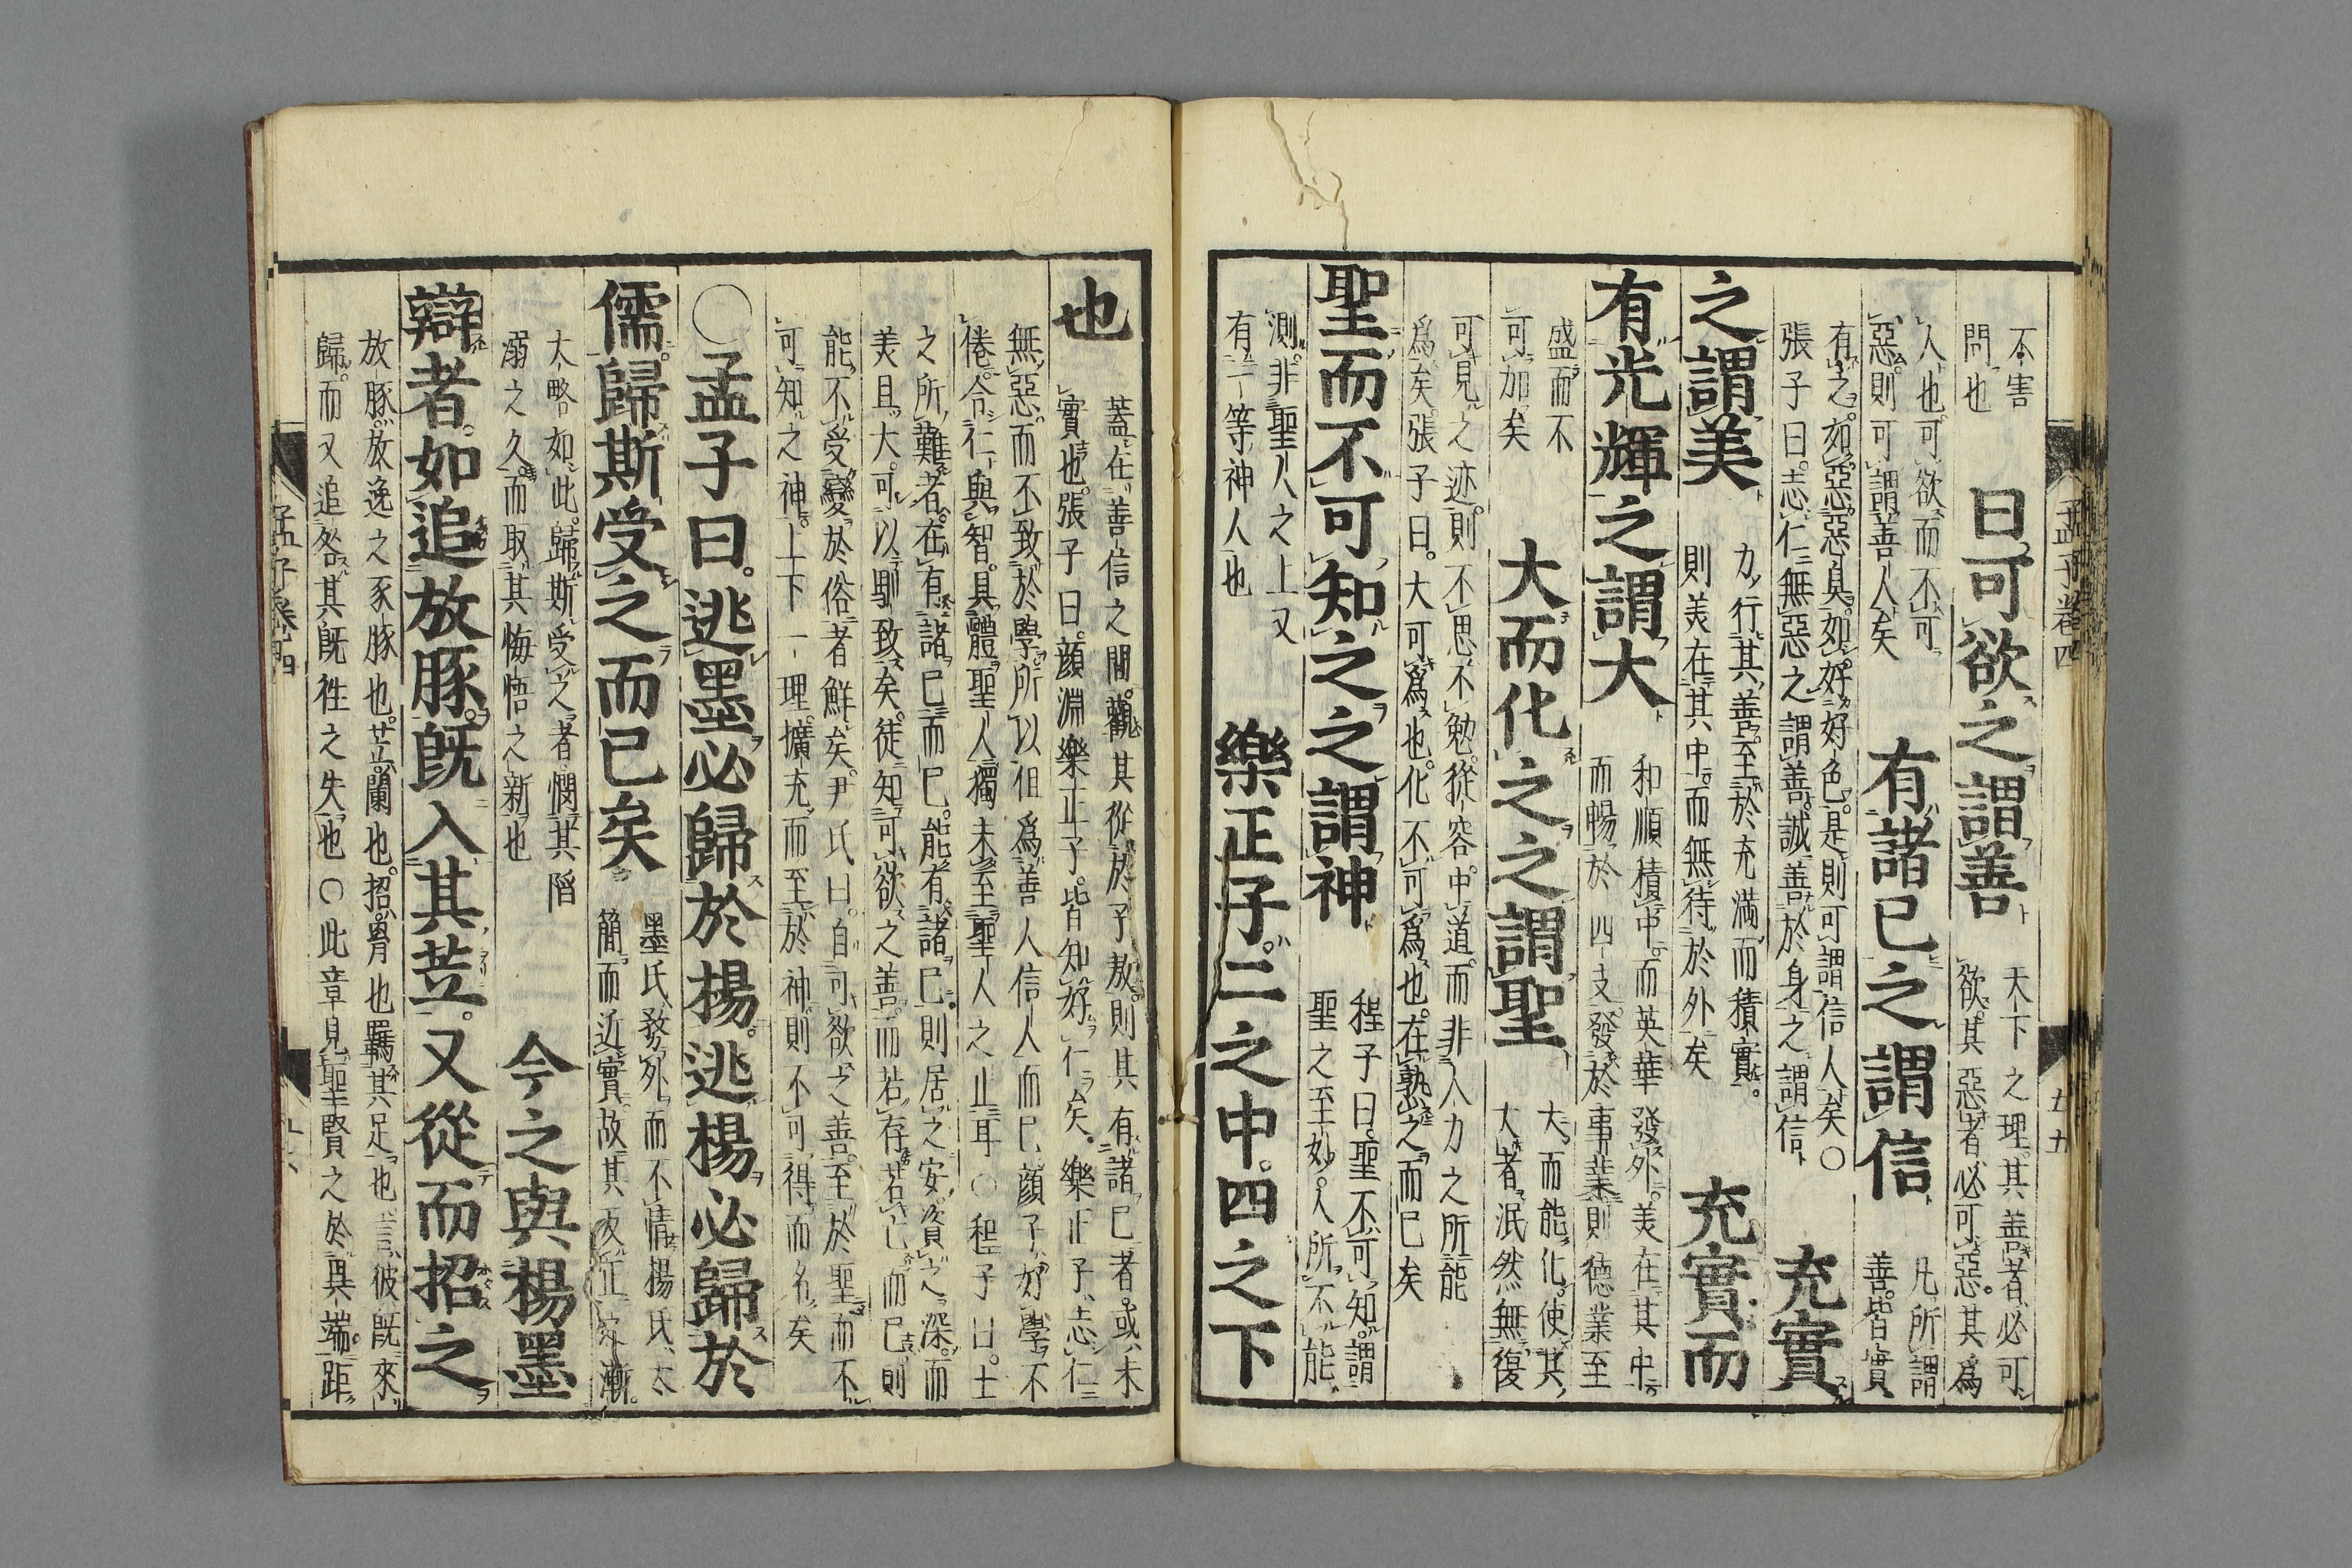 孟子卷四
五十五
不害
問也
曰可欲之謂善
天下之理其善者必可
欲其惡者必可惡其爲
人也可欲而不可
惡則可謂善人矣
有諸己之謂信
凡所謂
善皆實
有之如惡惡臭如好好色是則可謂信人矣〇
張子曰志仁無惡之謂善誠善於身之謂信
充實
之謂美
力行其善至於充滿而積實
則美在其中而無待於外矣
充實而
有光輝之謂大
和順積中而英華發外美在其中
而暢於四支發於事業則德業至
盛而不
可加矣
大而化之之謂聖
大而能化使其
大者泯然無復
可見之迹則不思不勉從容中道而非人力之所能
爲矣張子曰大可爲也化不可爲也在熟之而已矣
聖而不可知之之謂神
程子曰聖不可知謂
聖之至妙人所不能
測非聖人之上又
有一等神人也
樂正子二之中四之下
也
蓋在善信之間觀其從於子敖則其有諸己者或未
實也張子曰顔淵樂正子皆知好仁矣樂正子志仁
無惡而不致於學所以但爲善人信人而已顔子好學不
倦合仁與智具體聖人獨未至聖人之止耳〇程子曰士
之所難者在有諸己而已能有諸己則居之安資之深而
美且大可以馴致矣徒知可欲之善而若存若亡而已則
能不受變於俗者鮮矣尹氏曰自可欲之善至於聖而不
可知之神上下一理擴充而至於神則不可得而名矣
〇孟子曰逃墨必歸於楊逃楊必歸於
儒歸斯受之而已矣
墨氏務外而不情楊氏太
簡而近實故其反正之漸
大略如此歸斯受之者憫其陷
溺之久而取其悔悟之新也
今之與楊墨
辯者如追放豚既入其苙又從而招之
放豚放逸之豕豚也苙闌也招罥也羈其足也言彼既來
歸而又追咎其既往之失也〇此章見聖賢之於異端距
孟子卷四